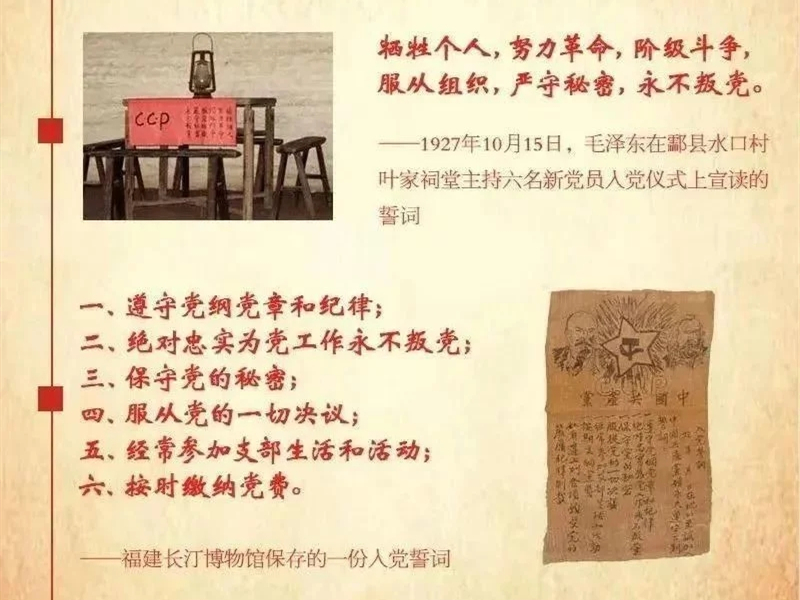 牺牲个人，努力革命，阶级斗争，
服从组织，严守秘密，永不叛党。
——1927年10月15日，毛泽东在酃县水口村
叶家祠堂主持六名新党员入党仪式上宣读的
誓词
CCP
一、遵守党纲党章和纪律；
二、绝对忠实为党工作永不叛党；
三、保守党的秘密；
四、服从党的一切决议；
五、经常参加支部生活和活动；
六、按时缴纳党费。
——福建长汀博物馆保存的一份入党誓词
黨產共國中